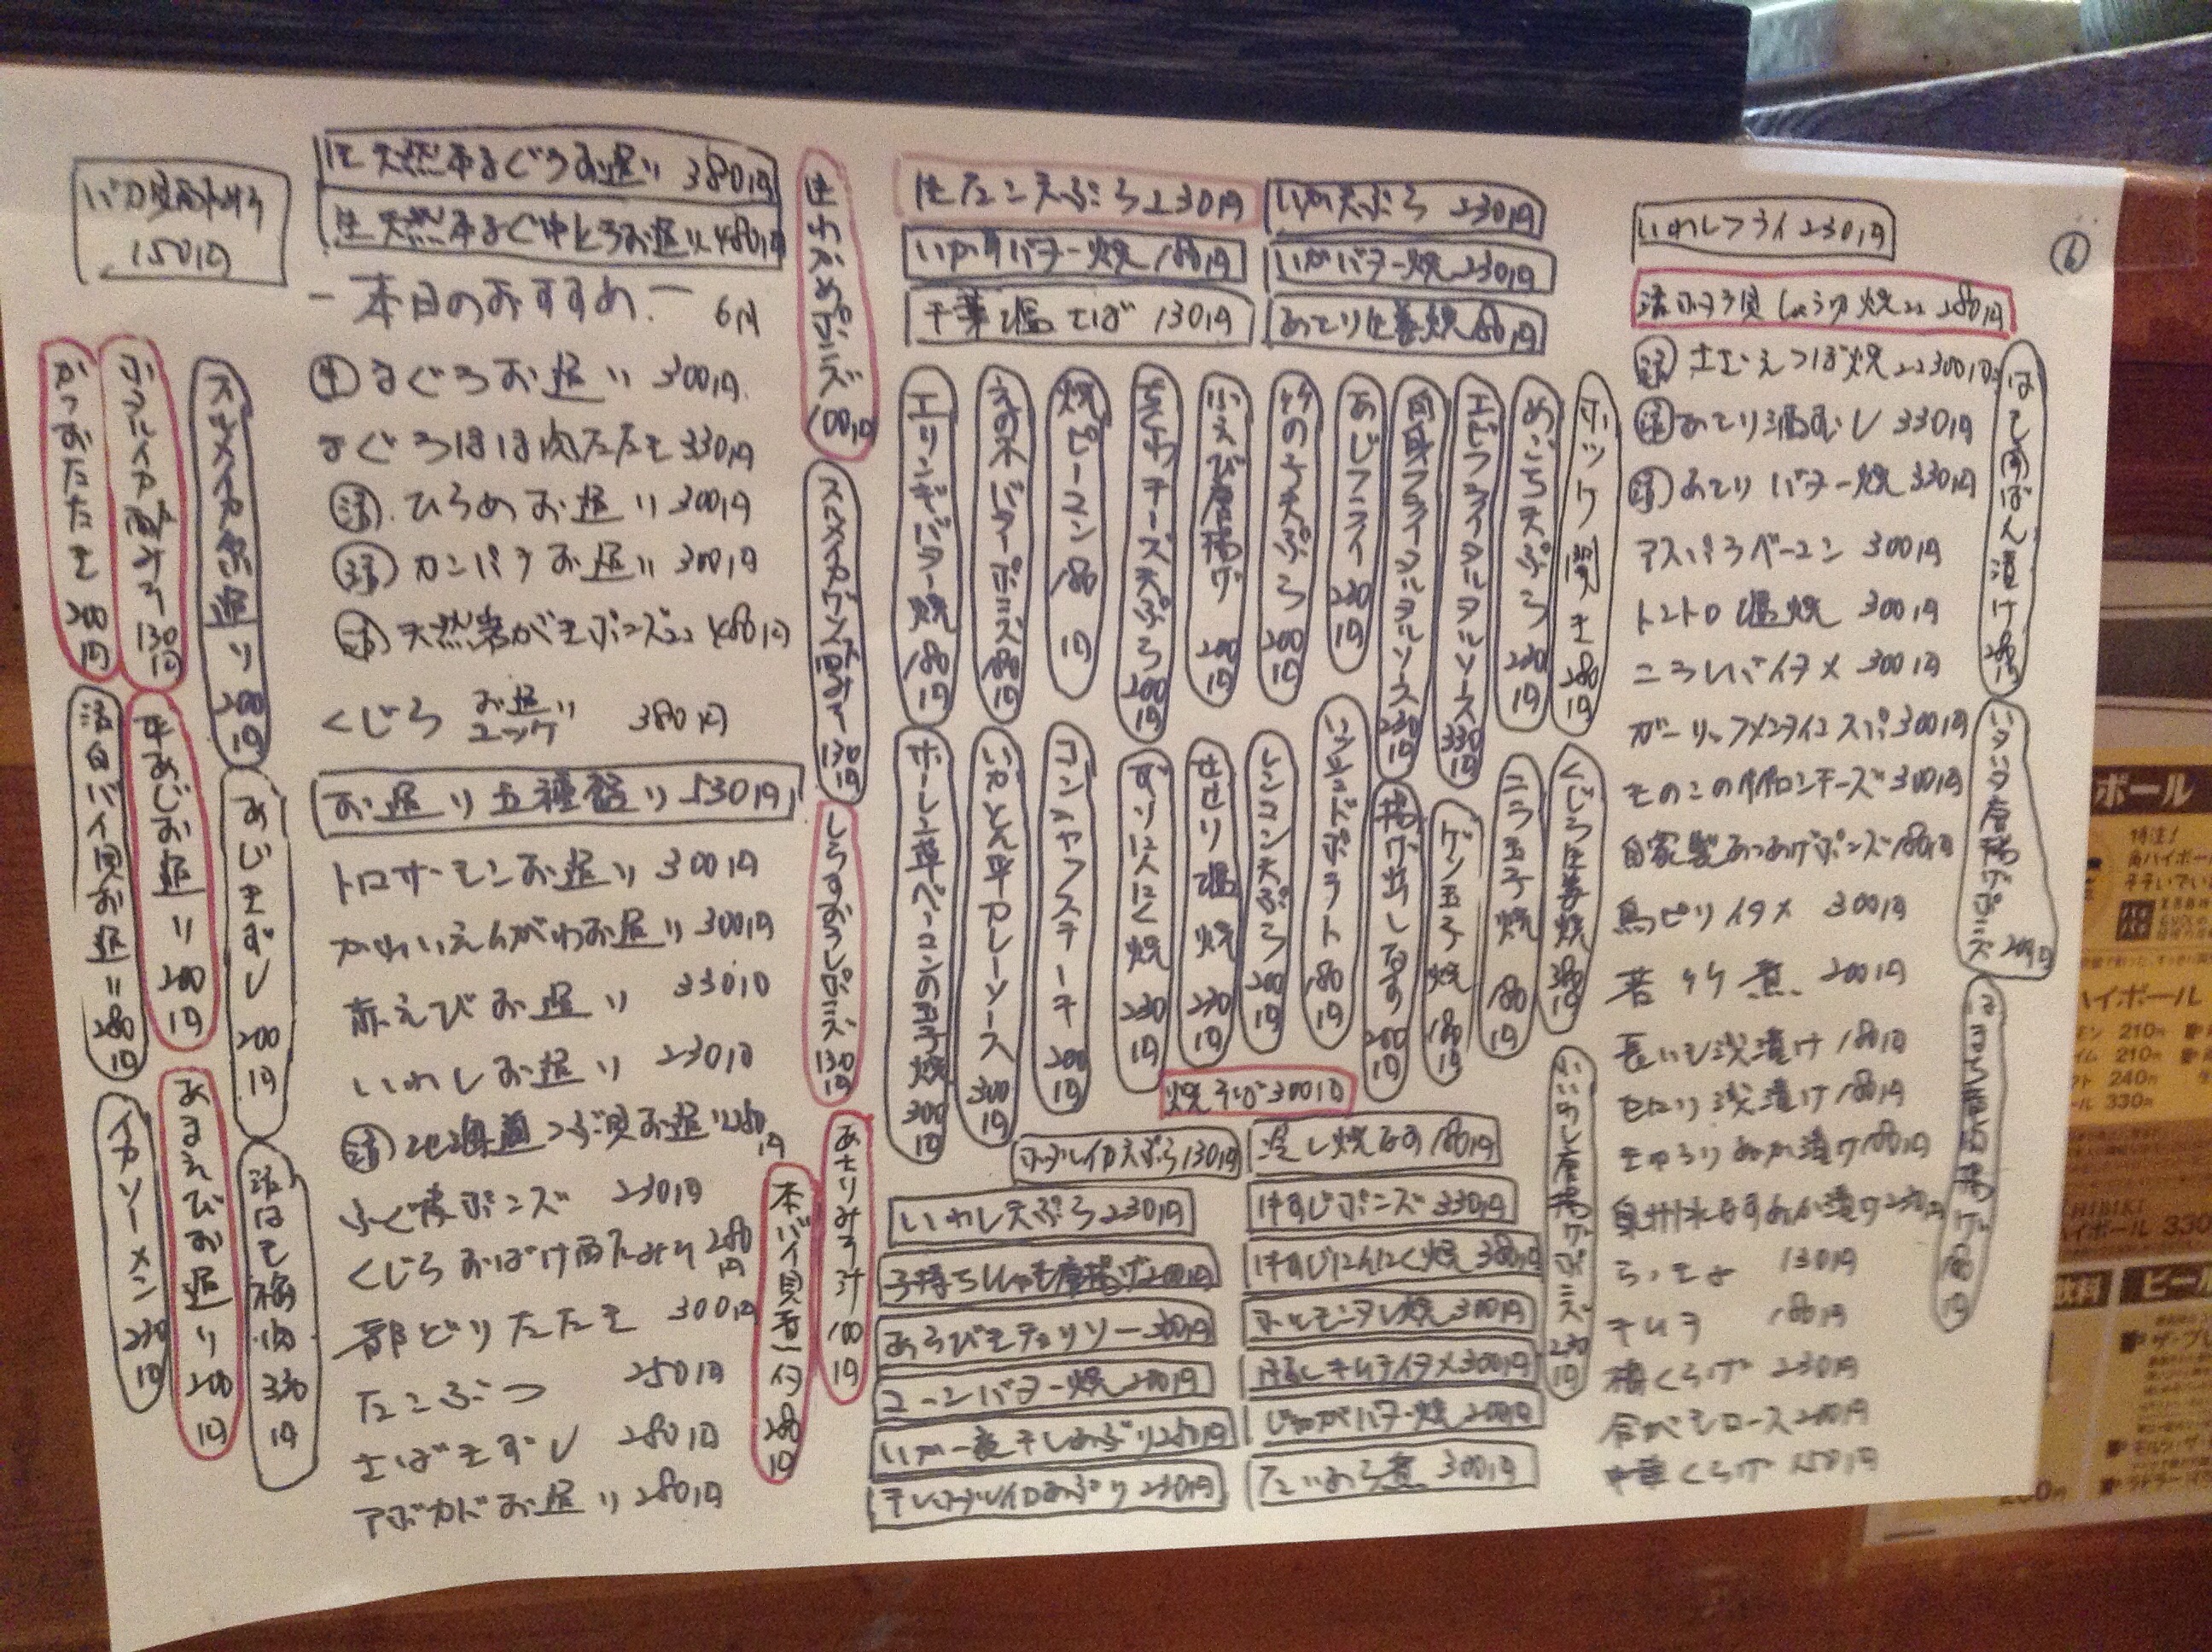 150円
生天然本まぐろお造り 380円
生天然本まぐ中とろお造り 480円
ー本日のおすすめー 6月
生 まぐろお造り 300円
まぐろほほ肉たたき 330円
活 ひらめお造り 300円
活 カンパチお造り 300円
活 天然岩がきポンズ 480円
くじら お造り ユッケ 380円
お造り五種盛り 530円
トロサーモンお造り 300円
かれいえんがわお造り 300円
赤えびお造り 330円
いわしお造り 230円
活 北海道つぶ貝お造り 280円
ふぐ皮ポンズ 230円
くじらおばけ酢みそ 280円
部どりたたき 300円
たこぶつ 250円
さばきずし 280円
アボカドお造り 280円
かつおたたき 200円
ホタルイカ酢みそ 130円
スルメイカお造り 200円
活白バイ貝お造り 280円
平あじお造り 200円
あじきずし 200円
イカソーメン 230円
あまえびお造り 200円
活はも 330円
生わかめポンズ 100円
スルメイカゲソ酢みそ 130円
しらすおろしポンズ 130円
あさりみそ汁 100円
本バイ貝煮付 280円
生たこ天ぷら 230円
いか天ぷら 230円
バター焼 180円
いかバター焼 230円
塩そば 130円
あさり生姜焼 180円
エリンギバター焼 180円
えの木バターポンズ 180円
焼ピーマン 180円
ささみチーズ天ぷら 200円
小えび唐揚げ 200円
竹の子天ぷら 200円
あじフライ 230円
白身フライタルタルソース 230円
エビフライタルタルソース 330円
めごち天ぷら 230円
ホッケ開き 280円
ホーレン草ベーコンの玉子焼 300円
いかとん平カレーソース 300円
コンニャクステーキ 200円
ずりにんにく焼 230円
せせり塩焼 230円
レンコン天ぷら 200円
フライドポテト 180円
揚げ出しなす 200円
ゲソ玉子焼 180円
ニラ玉子焼 180円
くじら生姜焼 380円
焼そば 300円
ホタルイカ天ぷら 130円
蒸し焼なす 180円
いわし天ぷら 230円
牛すじポンズ 330円
子持ちししゃも唐揚げ 200円
牛すじにんにく焼 380円
あらびきチョリソー 300円
タレ焼 300円
コーンバター焼 200円
キムチイタメ 300円
いか一夜干しあぶり 280円
じゃがバター焼 200円
干しホタルイカあぶり 230円
たいあら煮 300円
いわし唐揚げポンズ 230円
いわしフライ 230円
活ホタテ貝しょうゆ焼 280円
活 さざえつぼ焼 300円
活 あさり酒むし 330円
活 あさりバター焼 330円
アスパラベーコン 300円
トントロ塩焼 300円
ニラレバイタメ 300円
ガーリックメンタイコスパ 300円
きのこのマカロニチーズ 300円
自家製あつあげポンズ 180円
鳥ピリイタメ 300円
若竹煮 200円
長いも浅漬け 180円
セロリ浅漬け 180円
きゅうりぬか漬け 180円
泉州水なすぬか漬け 230円
らっきょ 130円
キムチ 180円
梅くらげ 230円
合がもロース 200円
中華くらげ 150円
はも南ばん漬け 280円
唐揚げポンズ
唐揚げ 180円
ハイボール
特注!
ハイボール
210円
210円
240円
330円
ハイボール 330
飲料
ビール